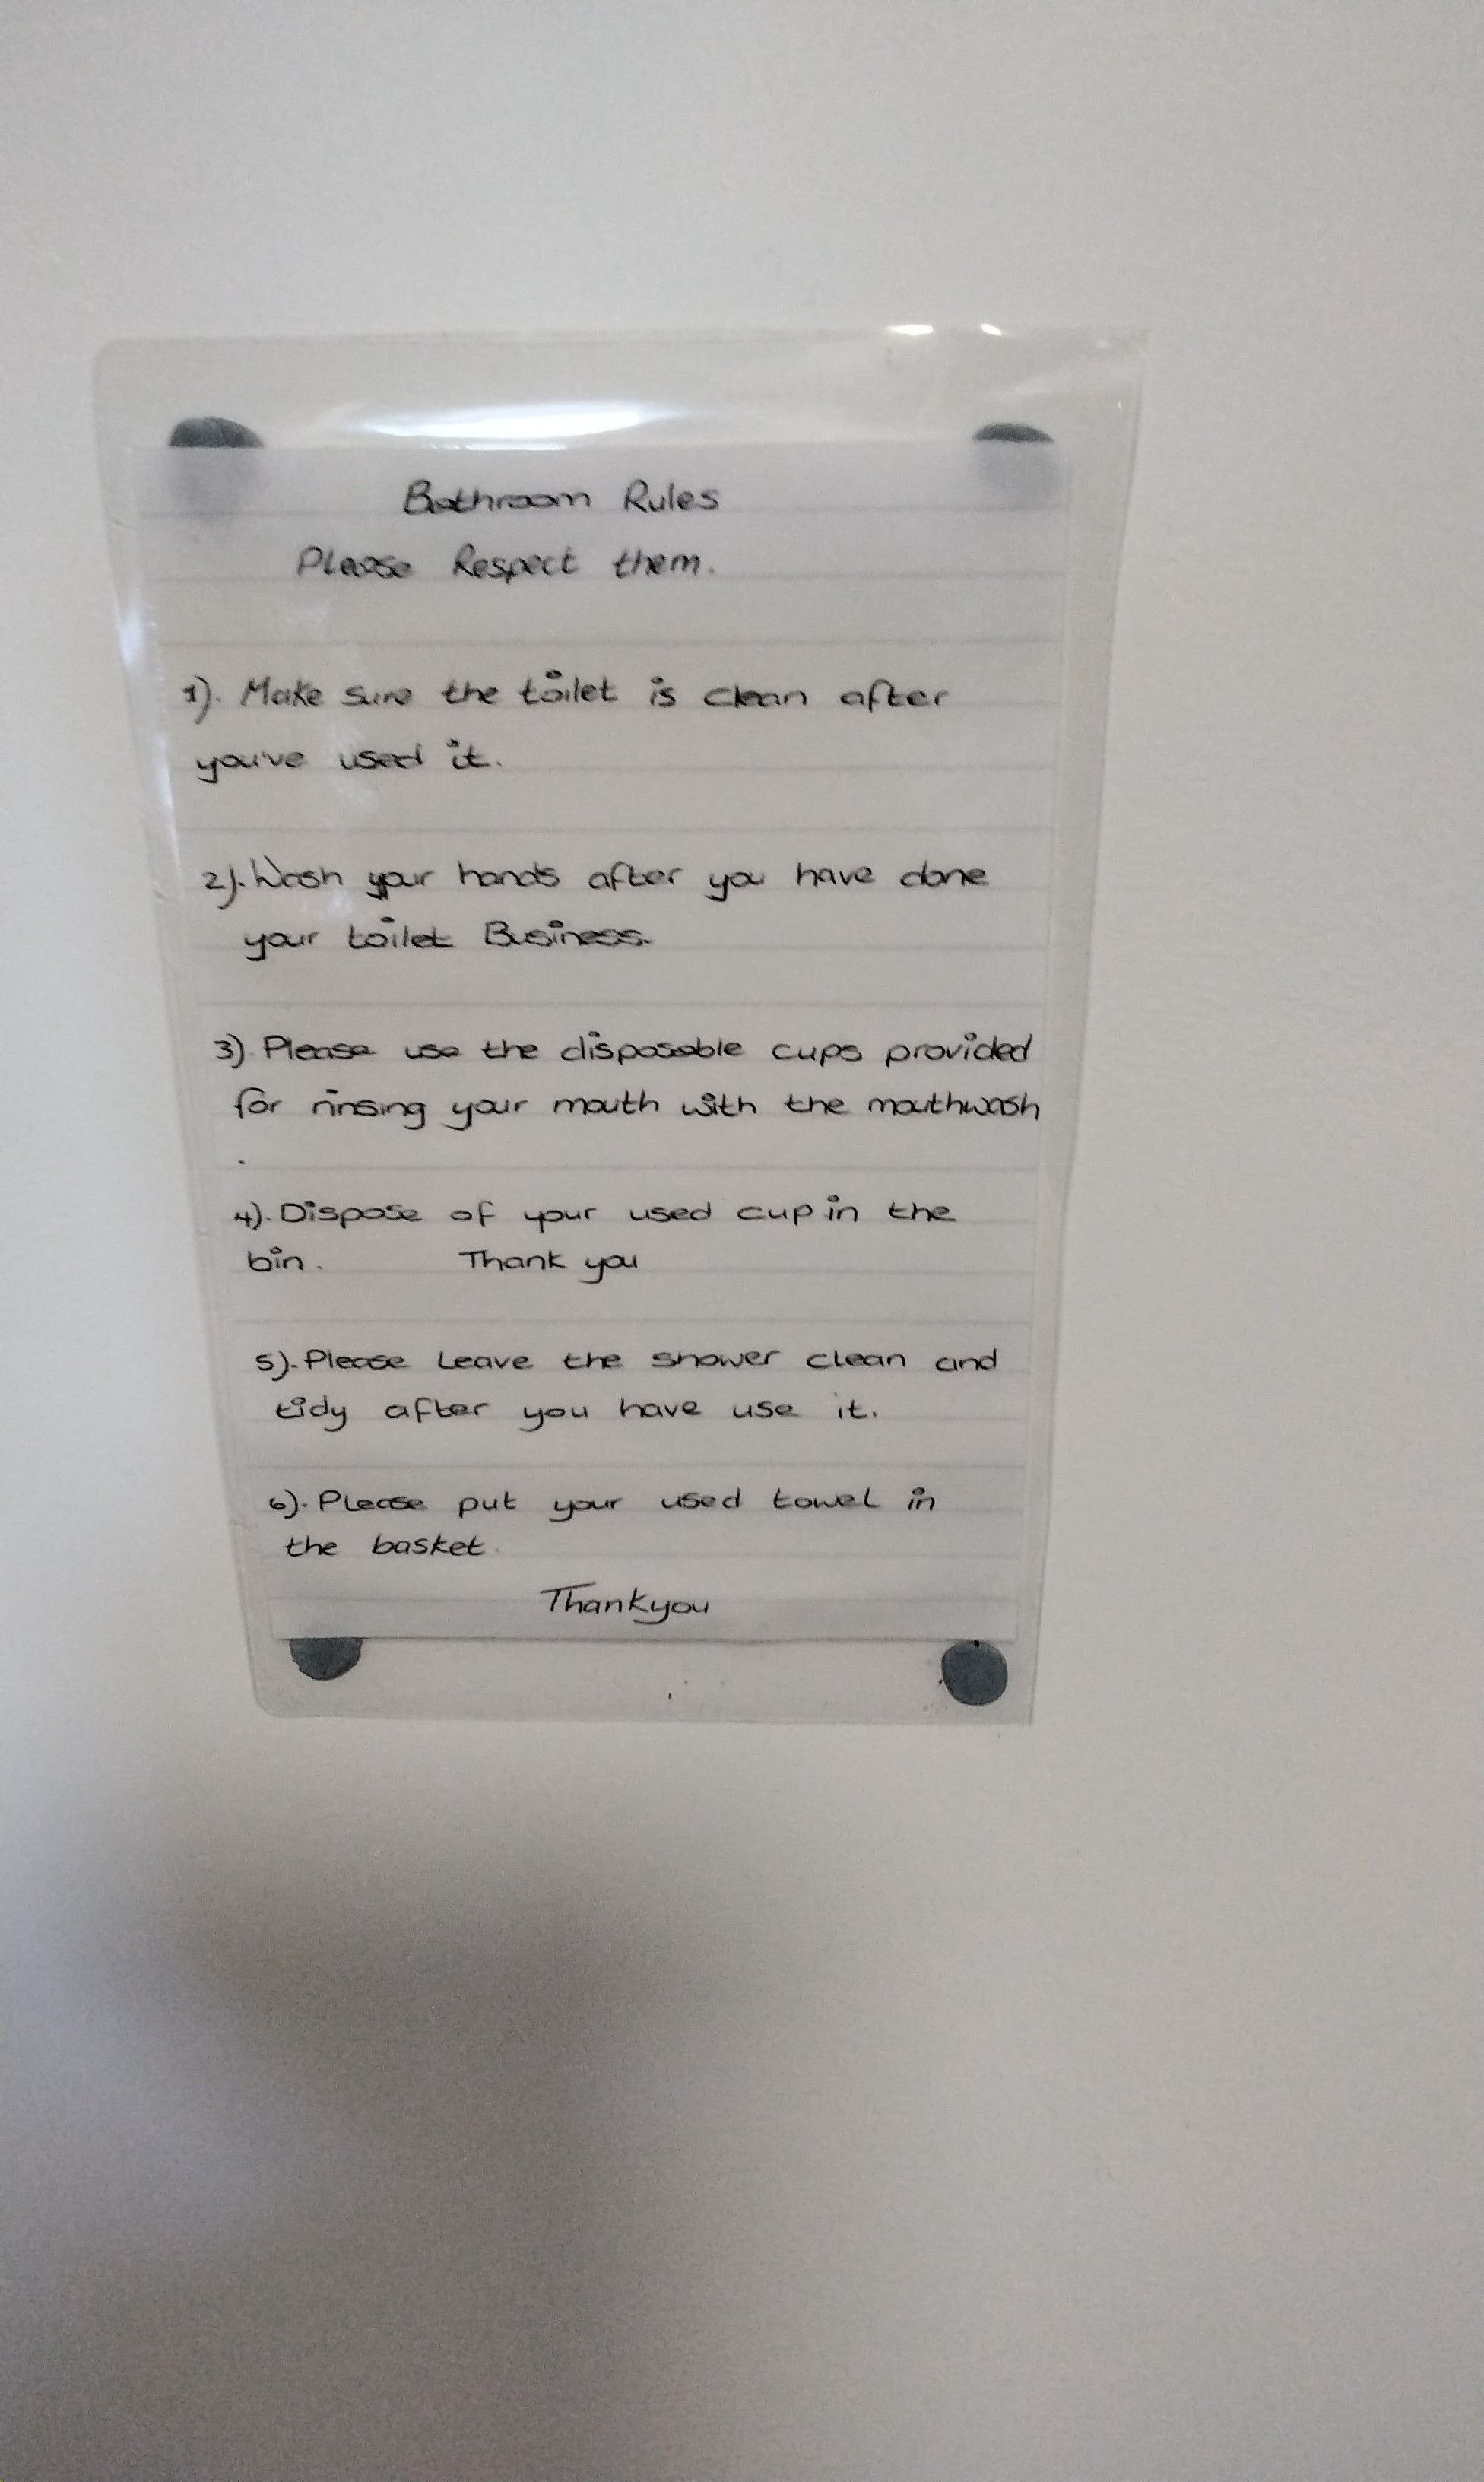 Bathroom Rules
Please Respect them.
1). Make sure the toilet is clean after
you've used it.
2). Wash your hands after you have done
your toilet Business.
3) Please use the disposable cups provided
for rinsing your mouth with the mouthwash
.
4). Dispose of your used cup in the
bin. Thank you
5). Please Leave the shower clean and
tidy after you have use it.
6). Please put your used towel in
the basket.
Thankyou